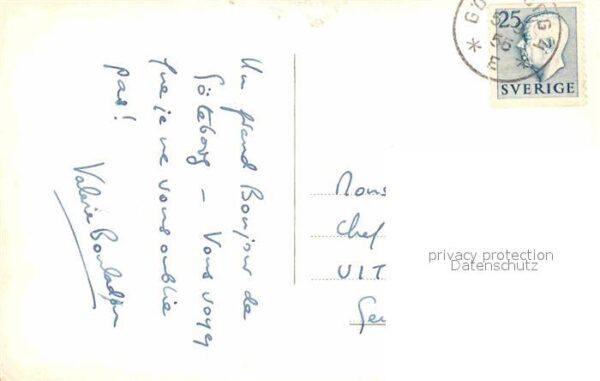 Un grand Bonjour de
Göteborg – Vous voyez
que je ne vous oublie
pas!
Valérie
Mons
Chef
UIT
Gen
25
SVERIGE
GÖ RG 4
privacy protection
Datenschutz